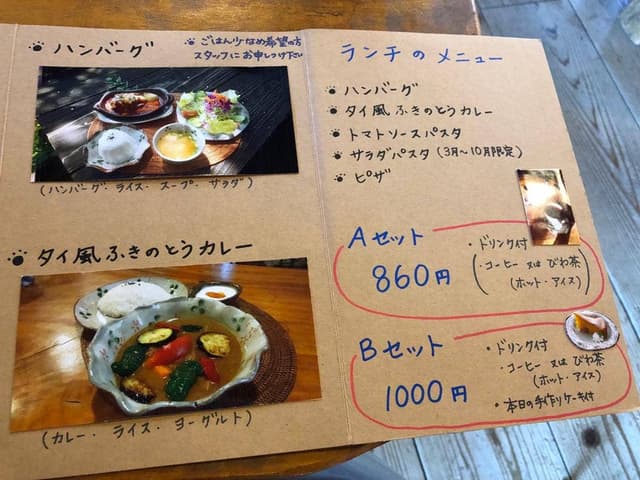 ハンバーグ
ごはん少なめ希望の方
スタッフにお申しつけ下さい
(ハンバーグ・ライス・スープ・サラダ)
タイ風ふきのとうカレー
(カレー・ライス・ヨーグルト)
ランチのメニュー
ハンバーグ
タイ風ふきのとうカレー
トマトソースパスタ
サラダパスタ(3月〜10月限定)
ピザ
Aセット
860円
・ドリンク付
(・コーヒー又はびわ茶
(ホット・アイス))
Bセット
1000円
・ドリンク付
・コーヒー又はびわ茶
(ホット・アイス)
・本日の手作りケーキ付